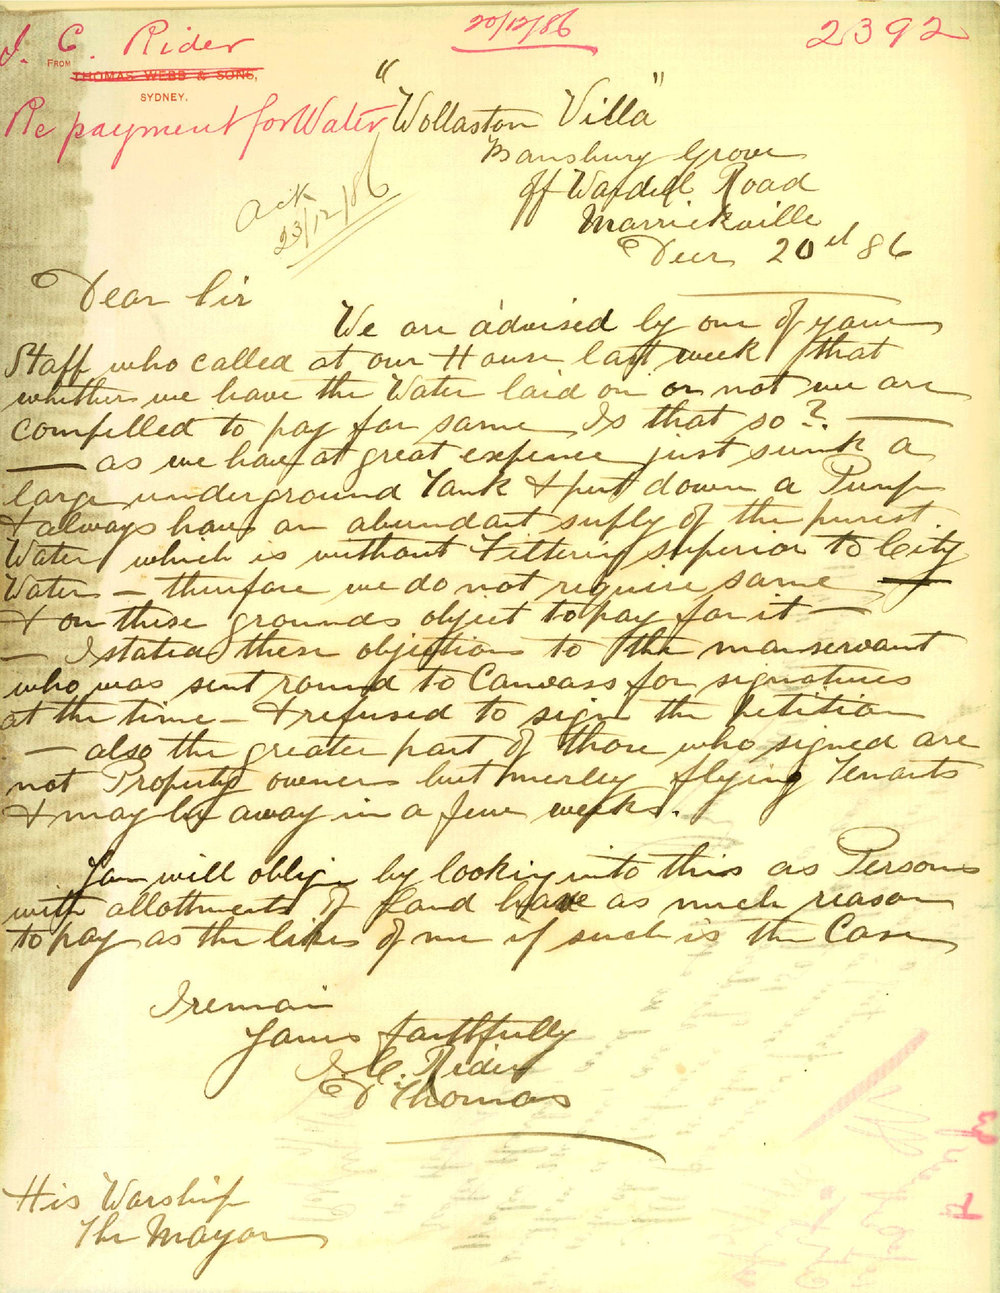 20/12/86
2392
J. C. Rider
FROM
THOMAS WEBB & SONS,
SYDNEY.
Re payment for Water
"Wollaston Villa"
Bansbury Grove
off Wardell Road
Marrickville
Decr 20th 86
Ack
23/12/86
Dear Sir
We are advised by one of your
Staff who called at our House last week that
whether we have the Water laid on or not we are
compelled to pay for same. Is that so? —
— as we have at great expence just sunk a
large underground Tank & put down a Pump
& always have an abundant suply of the purest
Water which is without Filtering superior to City
Water — therefore we do not require same —
& on these grounds object to pay for it —
— I stated these objections to the manservant
who was sent round to Canvass for signatures
at the time — & refused to sign the petition
— also the greater part of those who signed are
not Property owners but merley flying Tenants
& may be away in a few weeks.
You will oblige by looking into this as Persons
with allottments of Land have as much reason
to pay as the likes of me if such is the Case
I remain
Yours faithfully
J. C. Rider
Thomas
His Worship
The Mayor